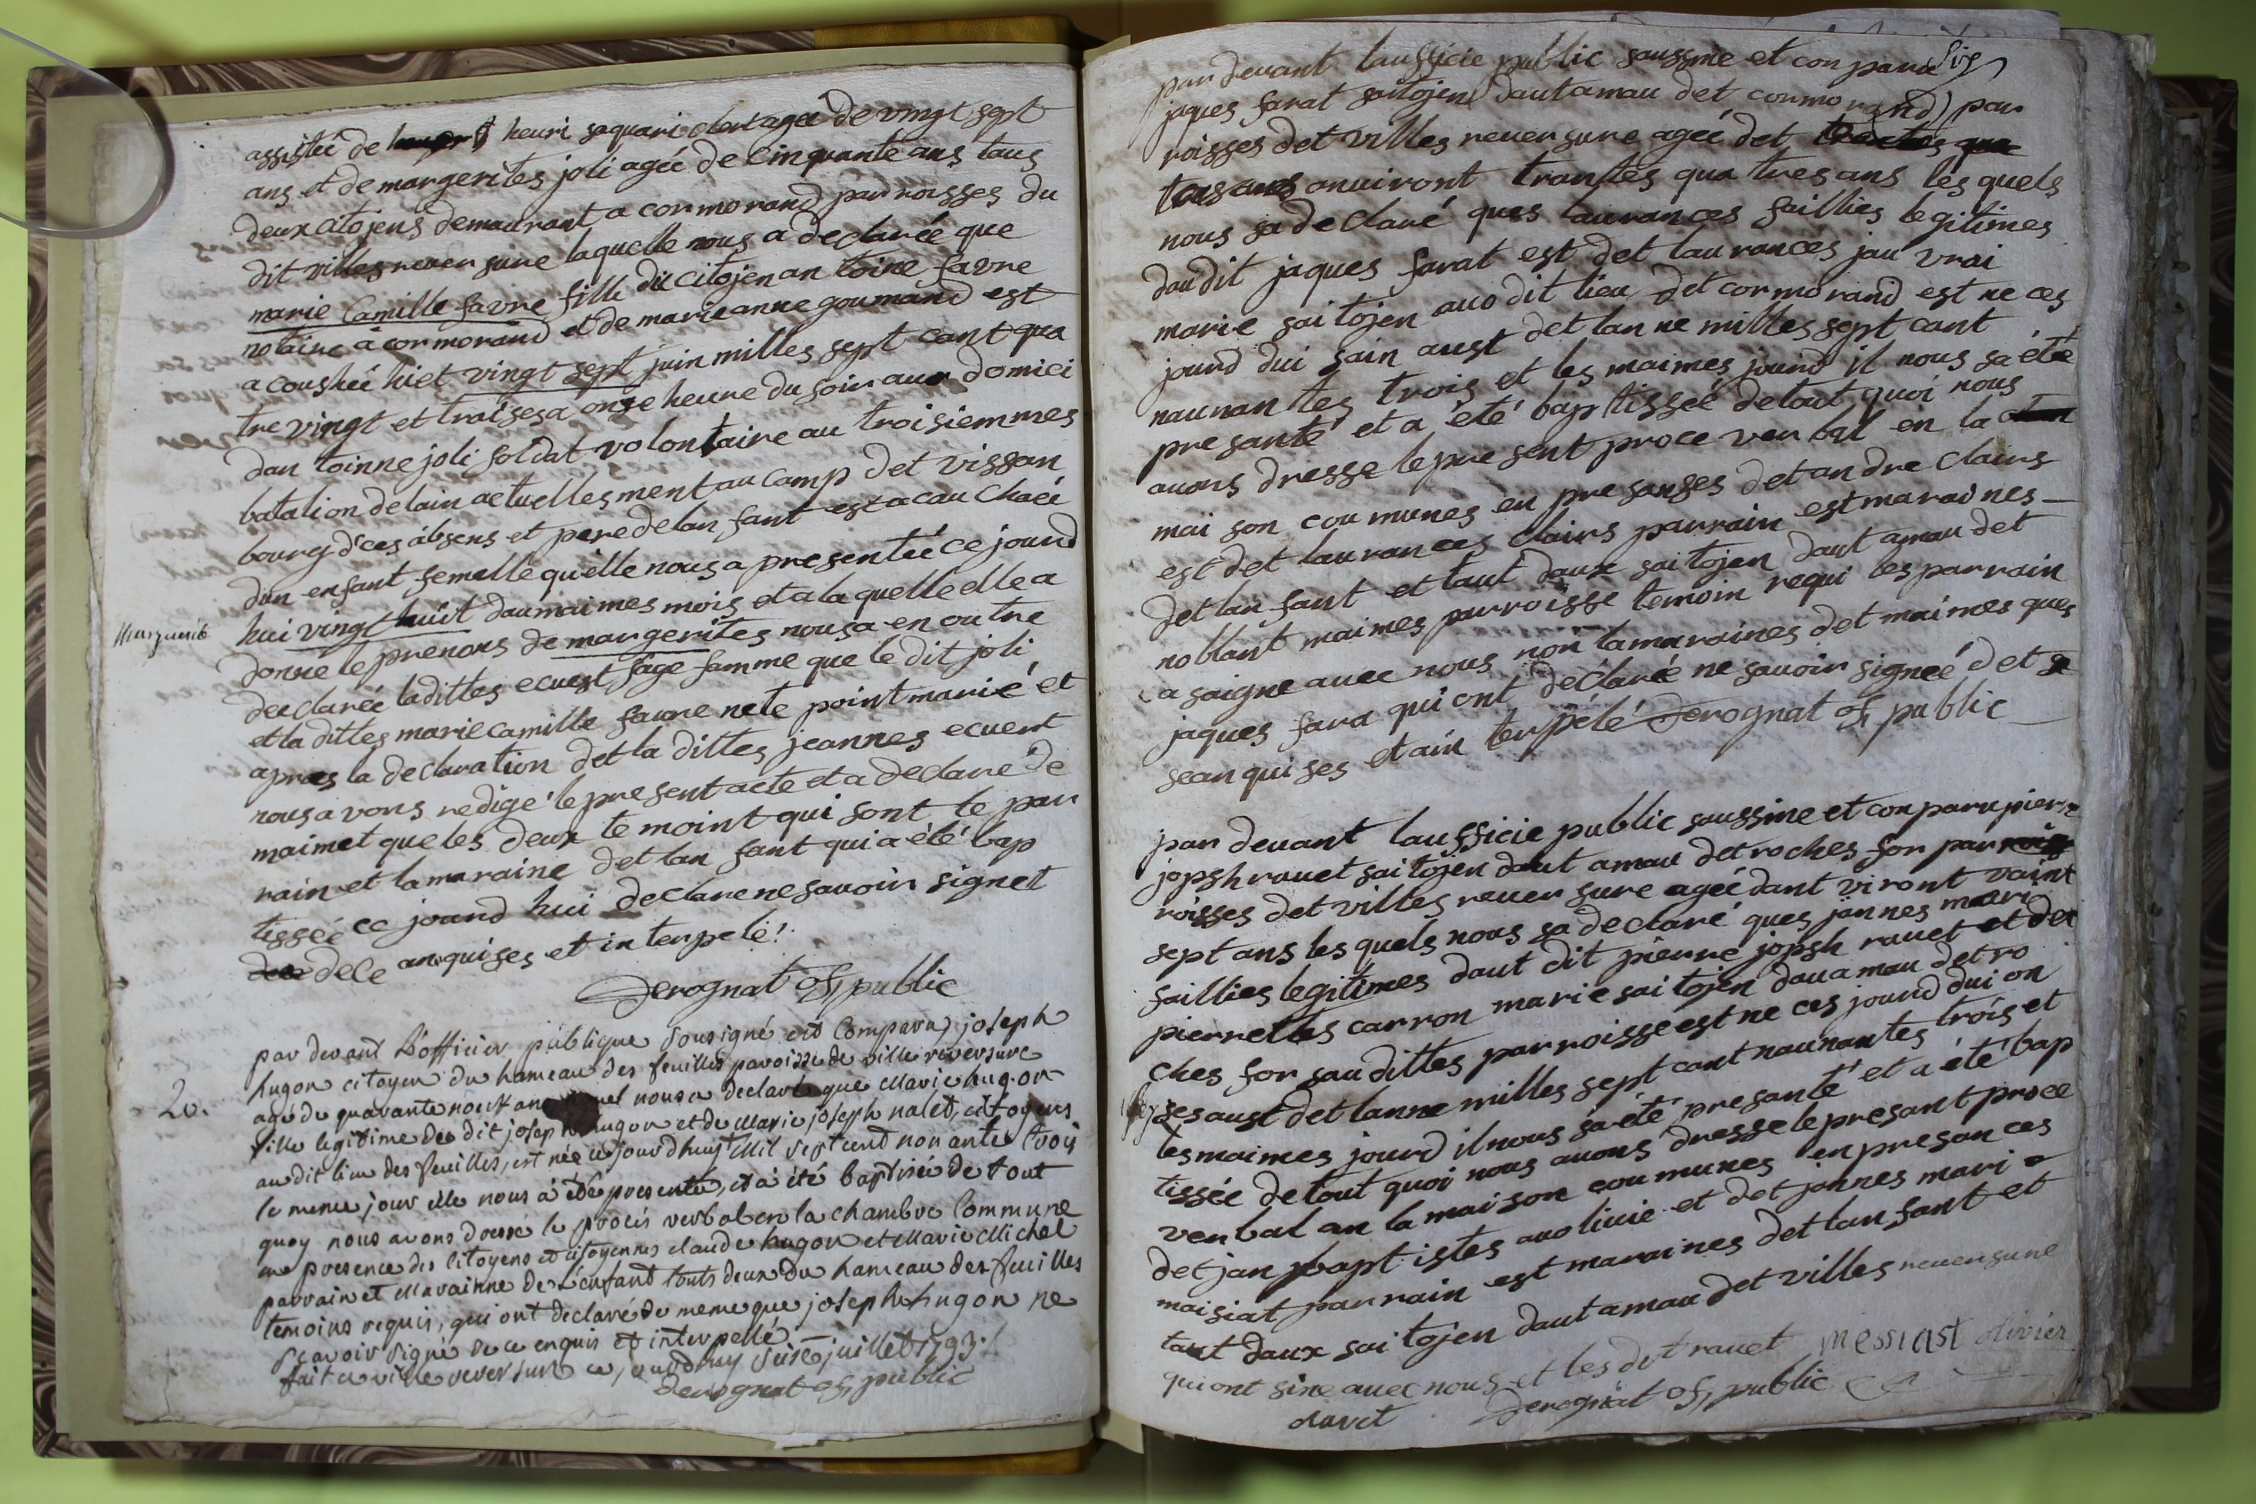 assistée de henri saquari clert agée de vingt sept
ans et de margerites joli agée de cinquante ans taus
deux citojens demaurant a cormorand parroisses du
dit villes reversure laquelle nous a declarée que
marie Camille favre fille du citojen an toine favre
notaire à cormorand et de marie anne goumand est
a coushée hiet vingt sept juin milles sept cant qua
tre vingt et traises a onze heure du soir aux domici
dan toinne joli soldat volontaire au troisiemmes
batalion delain actuellesment au camp det vissan
bourg d'ces absens et pere de lan fant est a cau chaée
dun enfant femelle qu'elle nous a presentée ce jourd
hui vingt huit daumaimes mois et a la quelle elle a
Marguerite
donne le prenons de margerites nous a en outre
declarée la dittes ecuert sage famme que le dit joli
et la dittes marie camille faure nete point marié et
apres la declaration det la dittes jeannes ecuert
nous a vons redigé le present acte et a declare de
maimet que les deux te moint qui sont le par
rain et la maraine det lan fant qui a été bap
tissée ce jourd hui declare ne savoir signet
dele anquises et in terpelé!
Derognat of public
par devant L'officier publique Sousigné est Comparu joseph
hugon citoyen du hameau des feuilles paroisse de ville reversure
agé de quarante neuf ans nous a declaré que Marie hugon
20.
fille legitime du dit joseph hugon et de Marie joseph nalet, citoyens
au dit lieu des feuilles, est née ce jourd huy Mil sept cent nonante trois
le meme jour elle nous à été presentée, et à été baptisée de tout
quoy nous avons dressé le procés verbal en la chambre Commune
en presence des Citoyens et citoyennes claude hugon et Marie Michel
parrain et Marainne de L'enfant touts deux du hameau des feuilles
temoins requis, qui ont declaré de meme que joseph hugon ne
sçavoir signé de ce enquis et interpellé
fait a ville reversure ce jourdhuy seise juillet 1793./
derognat of public
par devant laufficie public saussine et con parue
jaques farat saitojen daut amau det cormorand par
roisses det villes reuersure agée det
anuiront trantes qua tres ans les quels
nous sa declaré ques laurances faillies legitimes
daudit jaques farat est det laurances jau vrai
marie sai tojen auo dit lieu det cormorand est ne ces
jourd dui sain aust det lan ne milles sept cant
naunan tes trois et les maimes jourd il nous sa été
presanté et a été baptissée de tout quoi nous
auons dresse le pre sent proce ver bal en la
mai son cou munes en presanses det an dre clairs
est det lauran ces clairs parrain est maraines
det lan fant et taut daux saitojen daut amau det
noblant maimes parroisse temoin requi les parrain
a saigne auec nous non la maraines det maimes ques
jaques fara qui ont declarée ne savoir signeé det
sean qui ses et ain terpelé Derognat of public
par deuant laufficie public saussine et con paru pierre
jopsh rauet saitojen daut amau det roches for par
roisses det villes reuer sure agée dant viront vaint
sept ans les quels nous sa declaré ques jannes mari
faillies legitimes daut dit pierre jopsh rauet et det
pierrettes carron marie sai tojen dau amau det ro
ches for sau dittes parroisse est ne ces jourd dui on
ses aust det lanne milles sept cant naunantes trois et
les maimes jourd il nous sa été presanté et a été bap
tissée de tout quoi nous auons dresse le presant proce
ver bal an la maison cou munes en presan ces
det jan bapt istes auo liuie et det jannes mari
maisiat parrain est maraines det lan fant et
taut daux sai tojen daut amau det villes reuersure
qui ont sine auec nous et les dit rauet messiast olivier
ravet Derognat of public